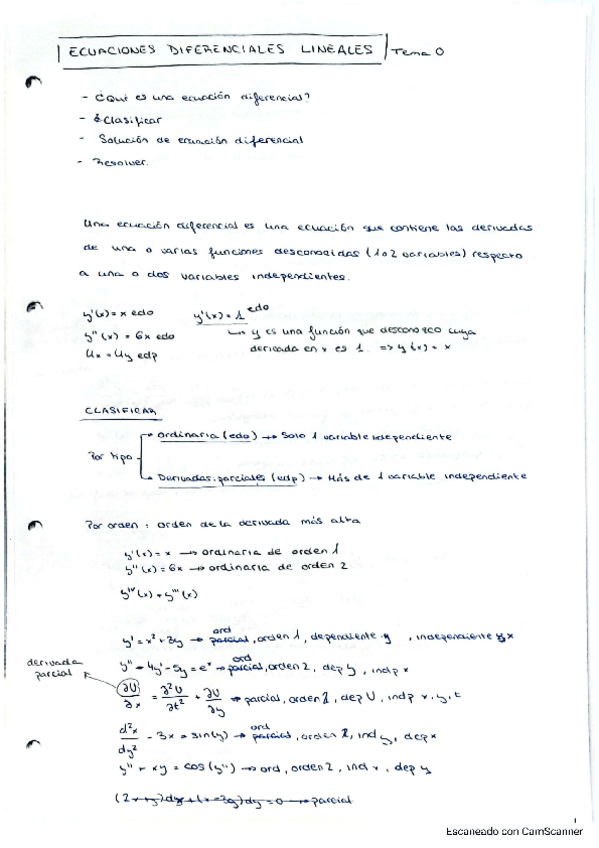 ECUACIONES DIFERENCIALES LINEALES Tema 0
- ¿Qué es una ecuación diferencial?
- Clasificar
- Solución de ecuación diferencial
- Resolver.
Una ecuación diferencial es una ecuación que contiene las derivadas
de una o varias funciones desconocidas (1 o 2 variables) respecto
a una o dos variables independientes.
y'(x) = x edo y'(x) = 1 edo
y''(x) = 6x edo ↳ y es una función que desconozco cuya
Ux = Uy edp derivada en x es 1. => y(x) = x
CLASIFICAR
Por tipo
Ordinaria (edo) → Solo 1 variable independiente
Derivadas parciales (edp) → Más de 1 variable independiente
Por orden : orden de la derivada más alta
y'(x) = x → ordinaria de orden 1
y''(x) = 6x → ordinaria de orden 2
y'ᵛ(x) + y'''(x)
ord
y' = x² + 3y → parcial, orden 1, dependiente y, independiente x
ord
y'' - 4y' - 5y = eˣ → parcial, orden 2, dep y, indp x
derivada
parcial
∂U/∂x = ∂²U/∂t² + ∂U/∂y → parcial, orden 2, dep U, indp x, y, t
ord
d²x/dy² - 3x = sin(y) → parcial, orden 2, ind y, dep x
y'' + xy = cos(y'') → ord, orden 2, ind x, dep y
(2x+y)dx + (x-3y)dy = 0 → parcial
1
Escaneado con CamScanner